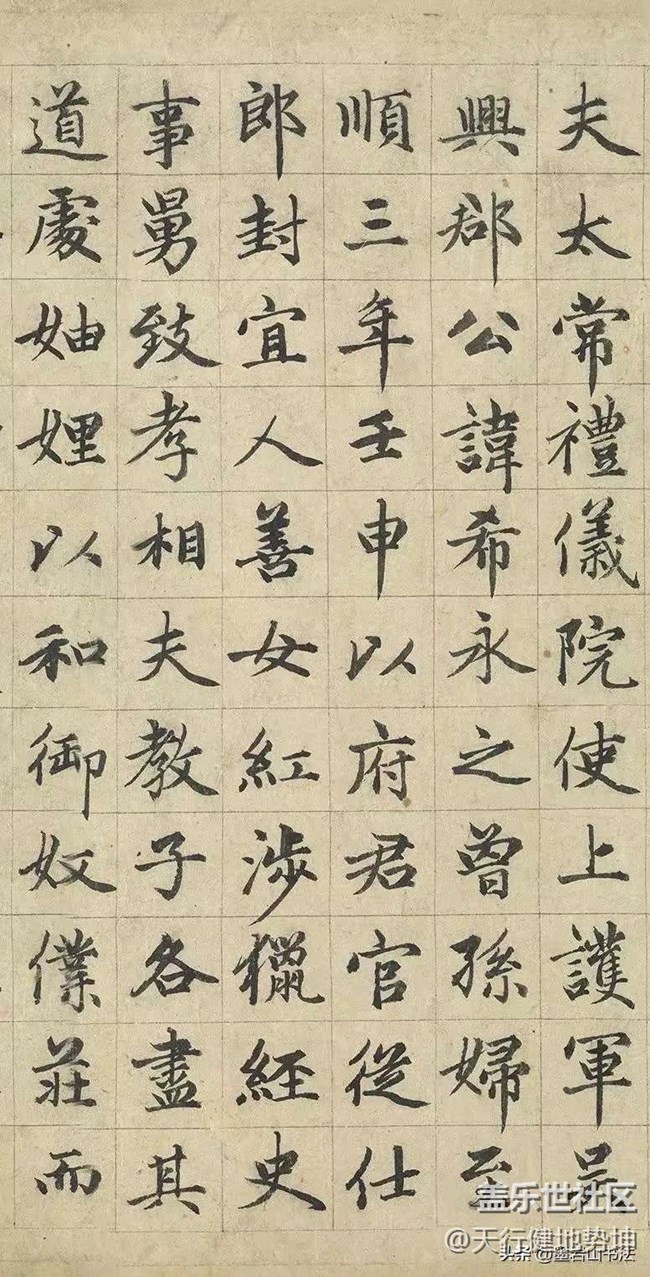 夫太常禮儀院使上護軍吳
興郡公諱希永之曾孫婦至
順三年壬申以府君官從仕
郎封宜人善女紅涉獵經史
事舅致孝相夫教子各盡其
道處妯娌以和御奴僕莊而
盖乐世社区
@天行健地势坤
头条